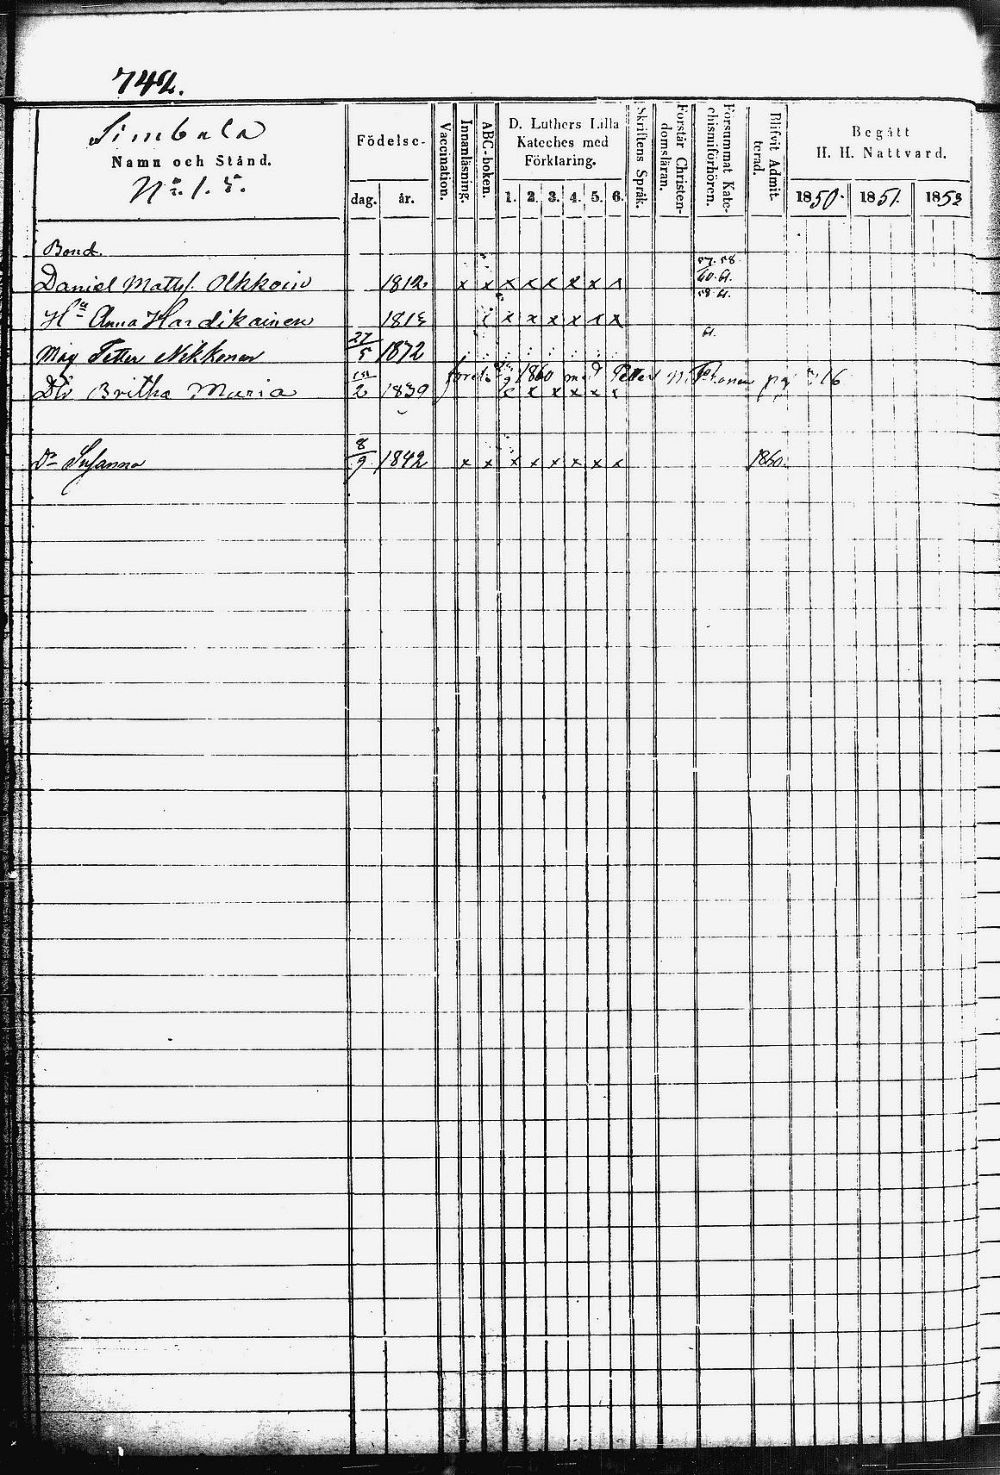 742.
Simbala
Namn och Stånd.
No 1. 5.
Födelse-
dag. år.
Vaccination.
Innanläsning.
ABC-boken.
D. Luthers Lilla
Kateches med
Förklaring.
1. 2. 3. 4. 5. 6.
Skriftens Språk.
Förstår Christen-
domsläran.
Försummat Kate-
chismiförhören.
Blifvit Admit-
terad.
Begått
H. H. Nattvard.
1850. 1851. 1852
Bond.
57. 58
Daniel Matts. Olkkoin 1812 x x x x x x x x 60. 61.
58. 61.
Hu Anna Hardikainen 1815 x x x x x x
61.
Måg Petter Nikkonen 27/5 1872
1860 med Petter
Dtr Britha Maria 2 1839 x x x x x x 16
Dr Susanna 8/9 1842 x x x x x x x x 1860.